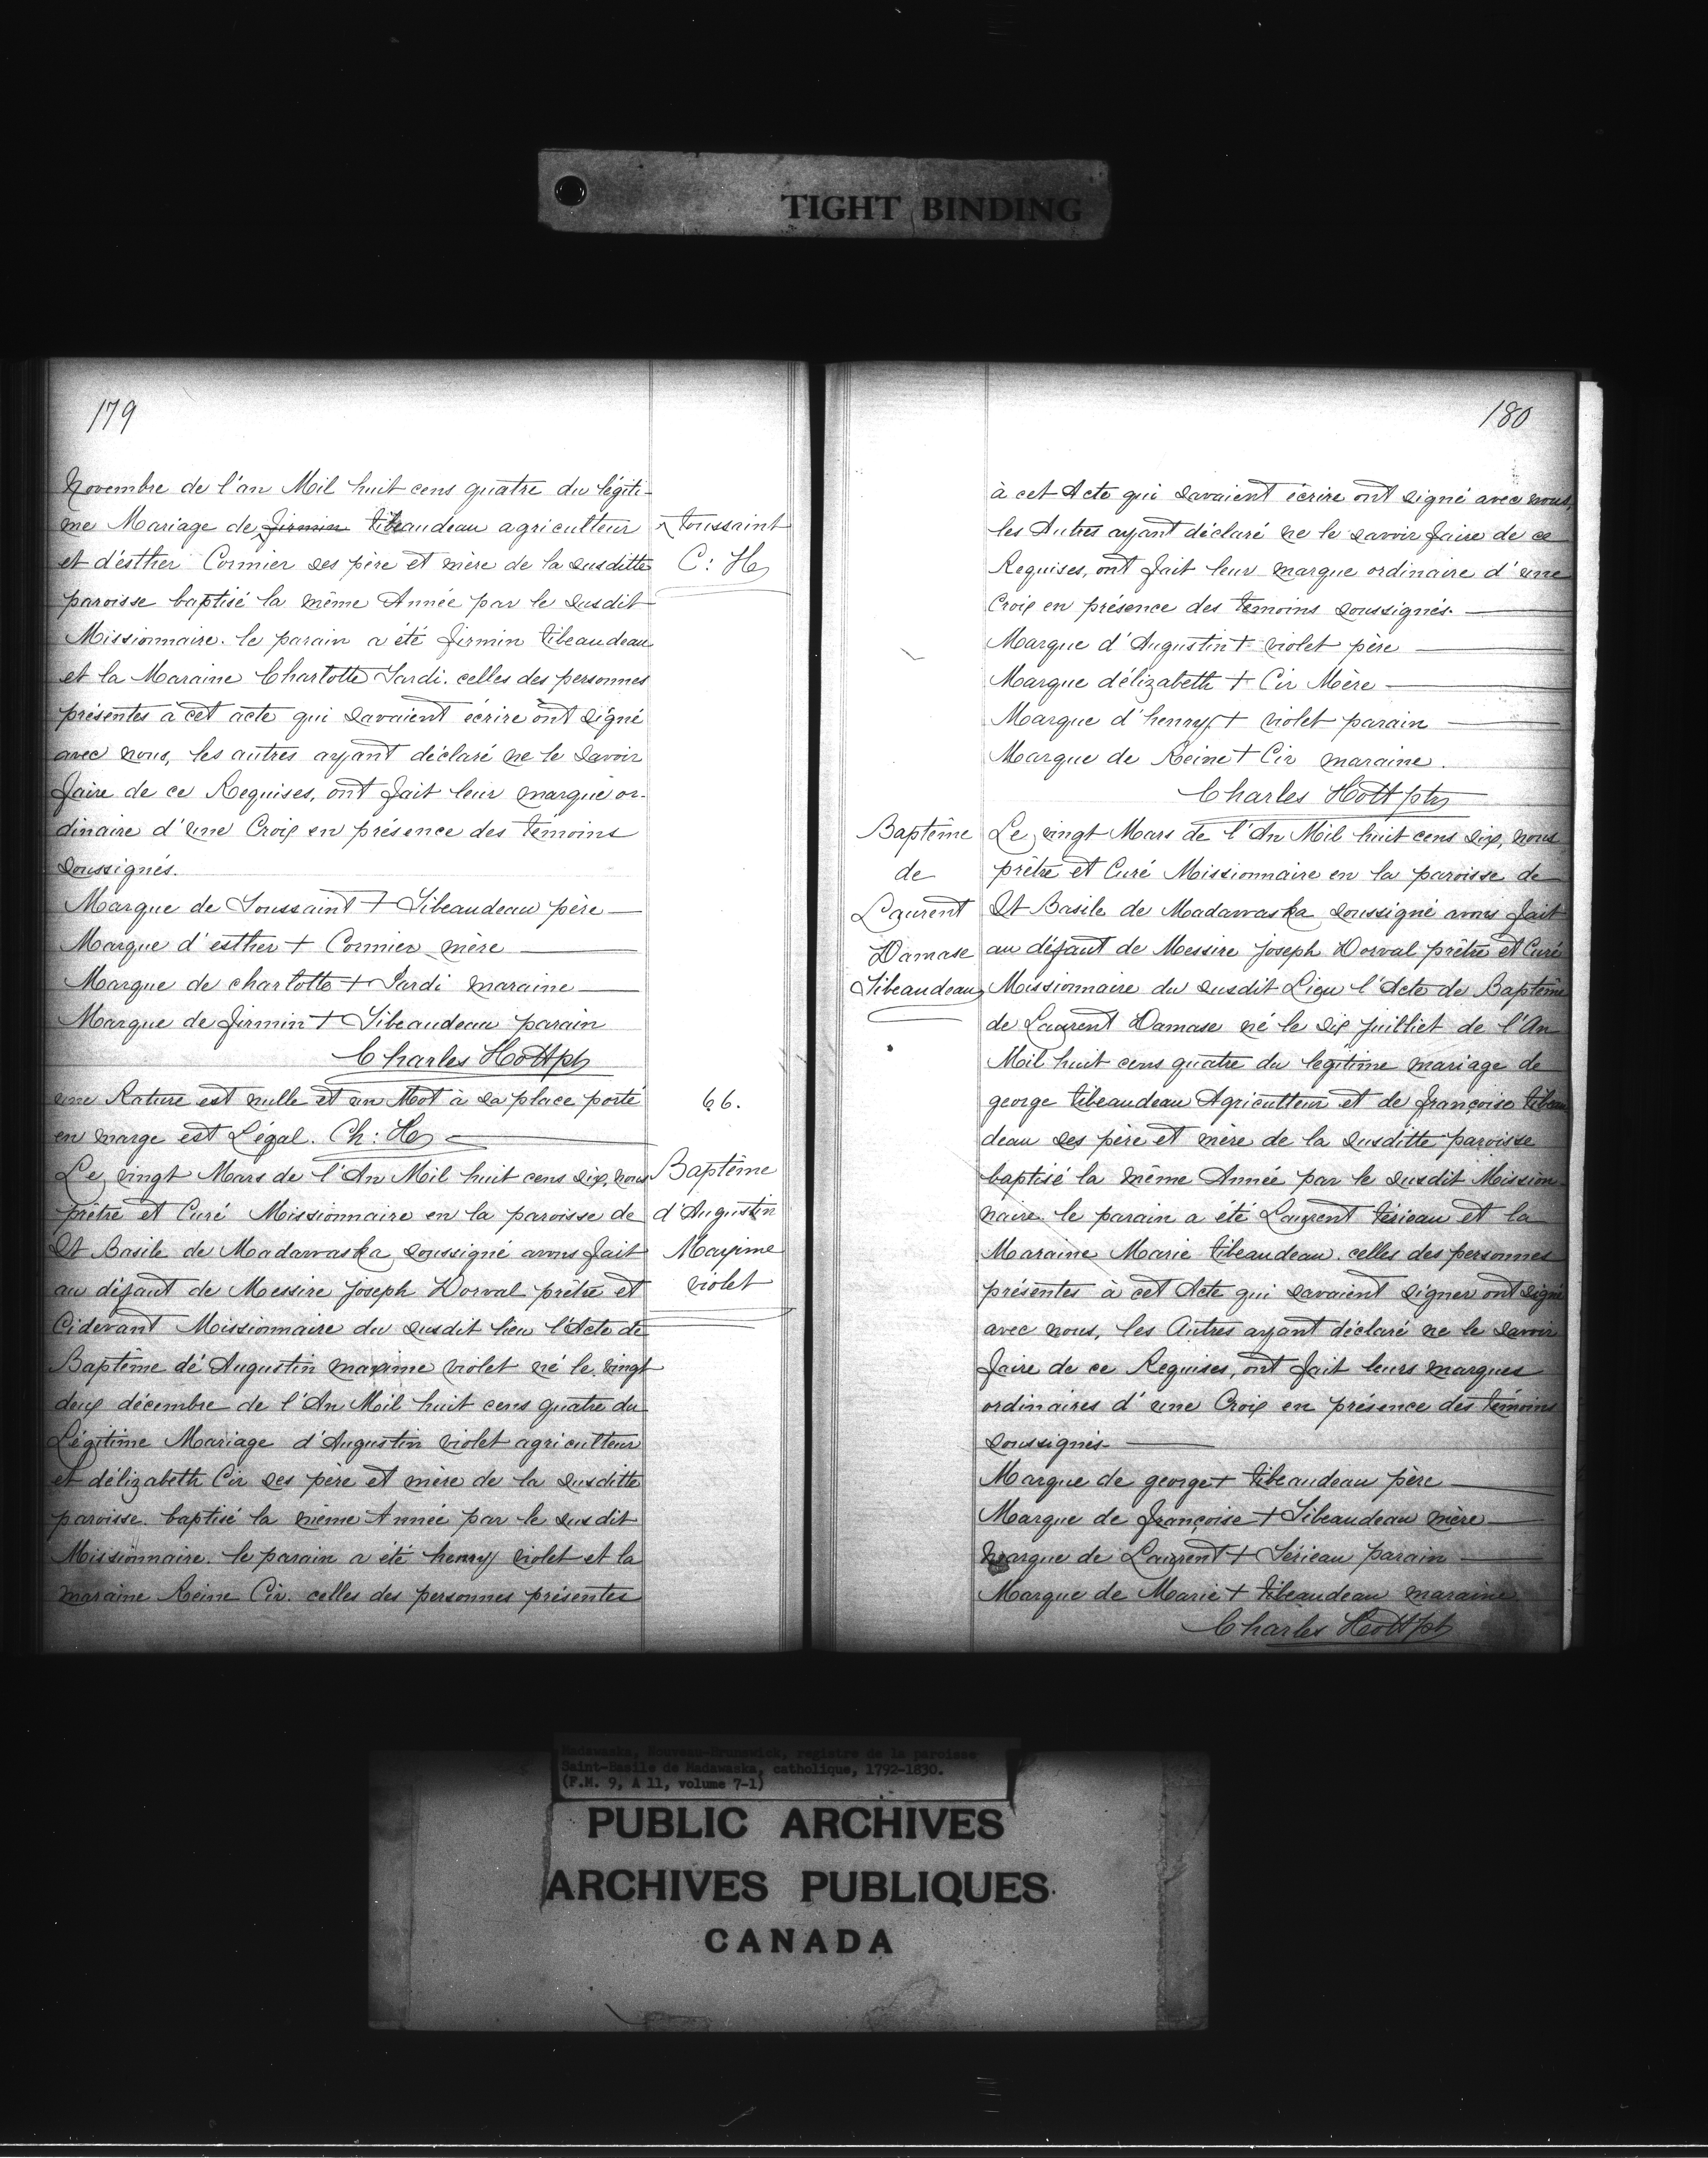 TIGHT BINDING
179
Novembre de l'an Mil huit cens quatre du légiti-
me Mariage de firmin tibeaudeau agriculteur
et d'ésther Cormier ses père et mère de la susditte
paroisse baptisé la même Année par le susdit
Missionnaire. le parain a été firmin tibeaudeau
et la Maraine Charlotte Sardi. celles des personnes
présentes à cet acte qui savaient écrire ont signé
avec nous, les autres ayant déclaré ne le savoir
faire de ce Requises, ont fait leur marque or-
dinaire d'une Croix en présence des témoins
soussignés.
Marque de Toussaint + Tibeaudeau père
Marque d'esther + Cormier mère
Marque de charlotte + Sardi maraine
Marque de firmin + Tibeaudeau parain
Charles Hott ptr
une Rature est nulle et un Mot à sa place porté
en marge est Légal. Ch: H
Le vingt Mars de l'An Mil huit cens dix, nous
prêtre et Curé Missionnaire en la paroisse de
St Basile de Madawaska soussigné avons fait
au défaut de Messire joseph Dorval prêtre et
Cidevant Missionnaire du susdit lieu l'Acte de
Baptême dé Augustin maxime violet né le vingt
deux décembre de l'An Mil huit cens quatre du
Légitime Mariage d'Augustin violet agriculteur
et délizabeth Cir ses père et mère de la susditte
paroisse. baptisé la même Année par le susdit
Missionnaire. le parain a été henry violet et la
maraine Reine Cir. celles des personnes présentes
toussaint
C: H
66.
Baptême
d'Augustin
Maxime
violet
180
à cet Acte qui savaient écrire ont signé avec nous,
les Autres ayant déclaré ne le savoir faire de ce
Requises, ont fait leur marque ordinaire d'une
Croix en présence des temoins soussignés.
Marque d'Augustin + violet père
Marque délizabeth + Cir Mère
Marque d'henry + violet parain
Marque de Reine + Cir maraine.
Charles Hott ptr
Baptême
de
Laurent
Damase
Tibeaudeau
Le vingt Mars de l'An Mil huit cens dix, nous
prêtre et Curé Missionnaire en la paroisse de
St Basile de Madawaska soussigné avons fait
au défaut de Messire joseph Dorval prêtre et Curé
Missionnaire du susdit Lieu l'Acte de Baptême
de Laurent Damase né le dix juilliet de l'An
Mil huit cens quatre du legitime mariage de
george tibeaudeau Agriculteur et de françoise tibeau
deau ses père et mère de la susditte paroisse
baptisé la même Année par le susdit Mission-
naire. le parain a été Laurent térieau et la
Maraine Marie tibeaudeau. celles des personnes
présentes à cet Acte qui savaient signer ont signé
avec nous, les Autres ayant déclaré ne le savoir
faire de ce Requises, ont fait leurs marques
ordinaires d'une Croix en présence des témoins
soussignés
Marque de george + tibeaudeau père
Marque de françoise + Tibeaudeau mère
Marque de Laurent + Térieau parain
Marque de Marie + tibeaudeau maraine
Charles Hott ptr
Madawaska, Nouveau-Brunswick, registre de la paroisse
Saint-Basile de Madawaska, catholique, 1792-1830.
(F.M. 9, A 11, volume 7-1)
PUBLIC ARCHIVES
ARCHIVES PUBLIQUES
CANADA